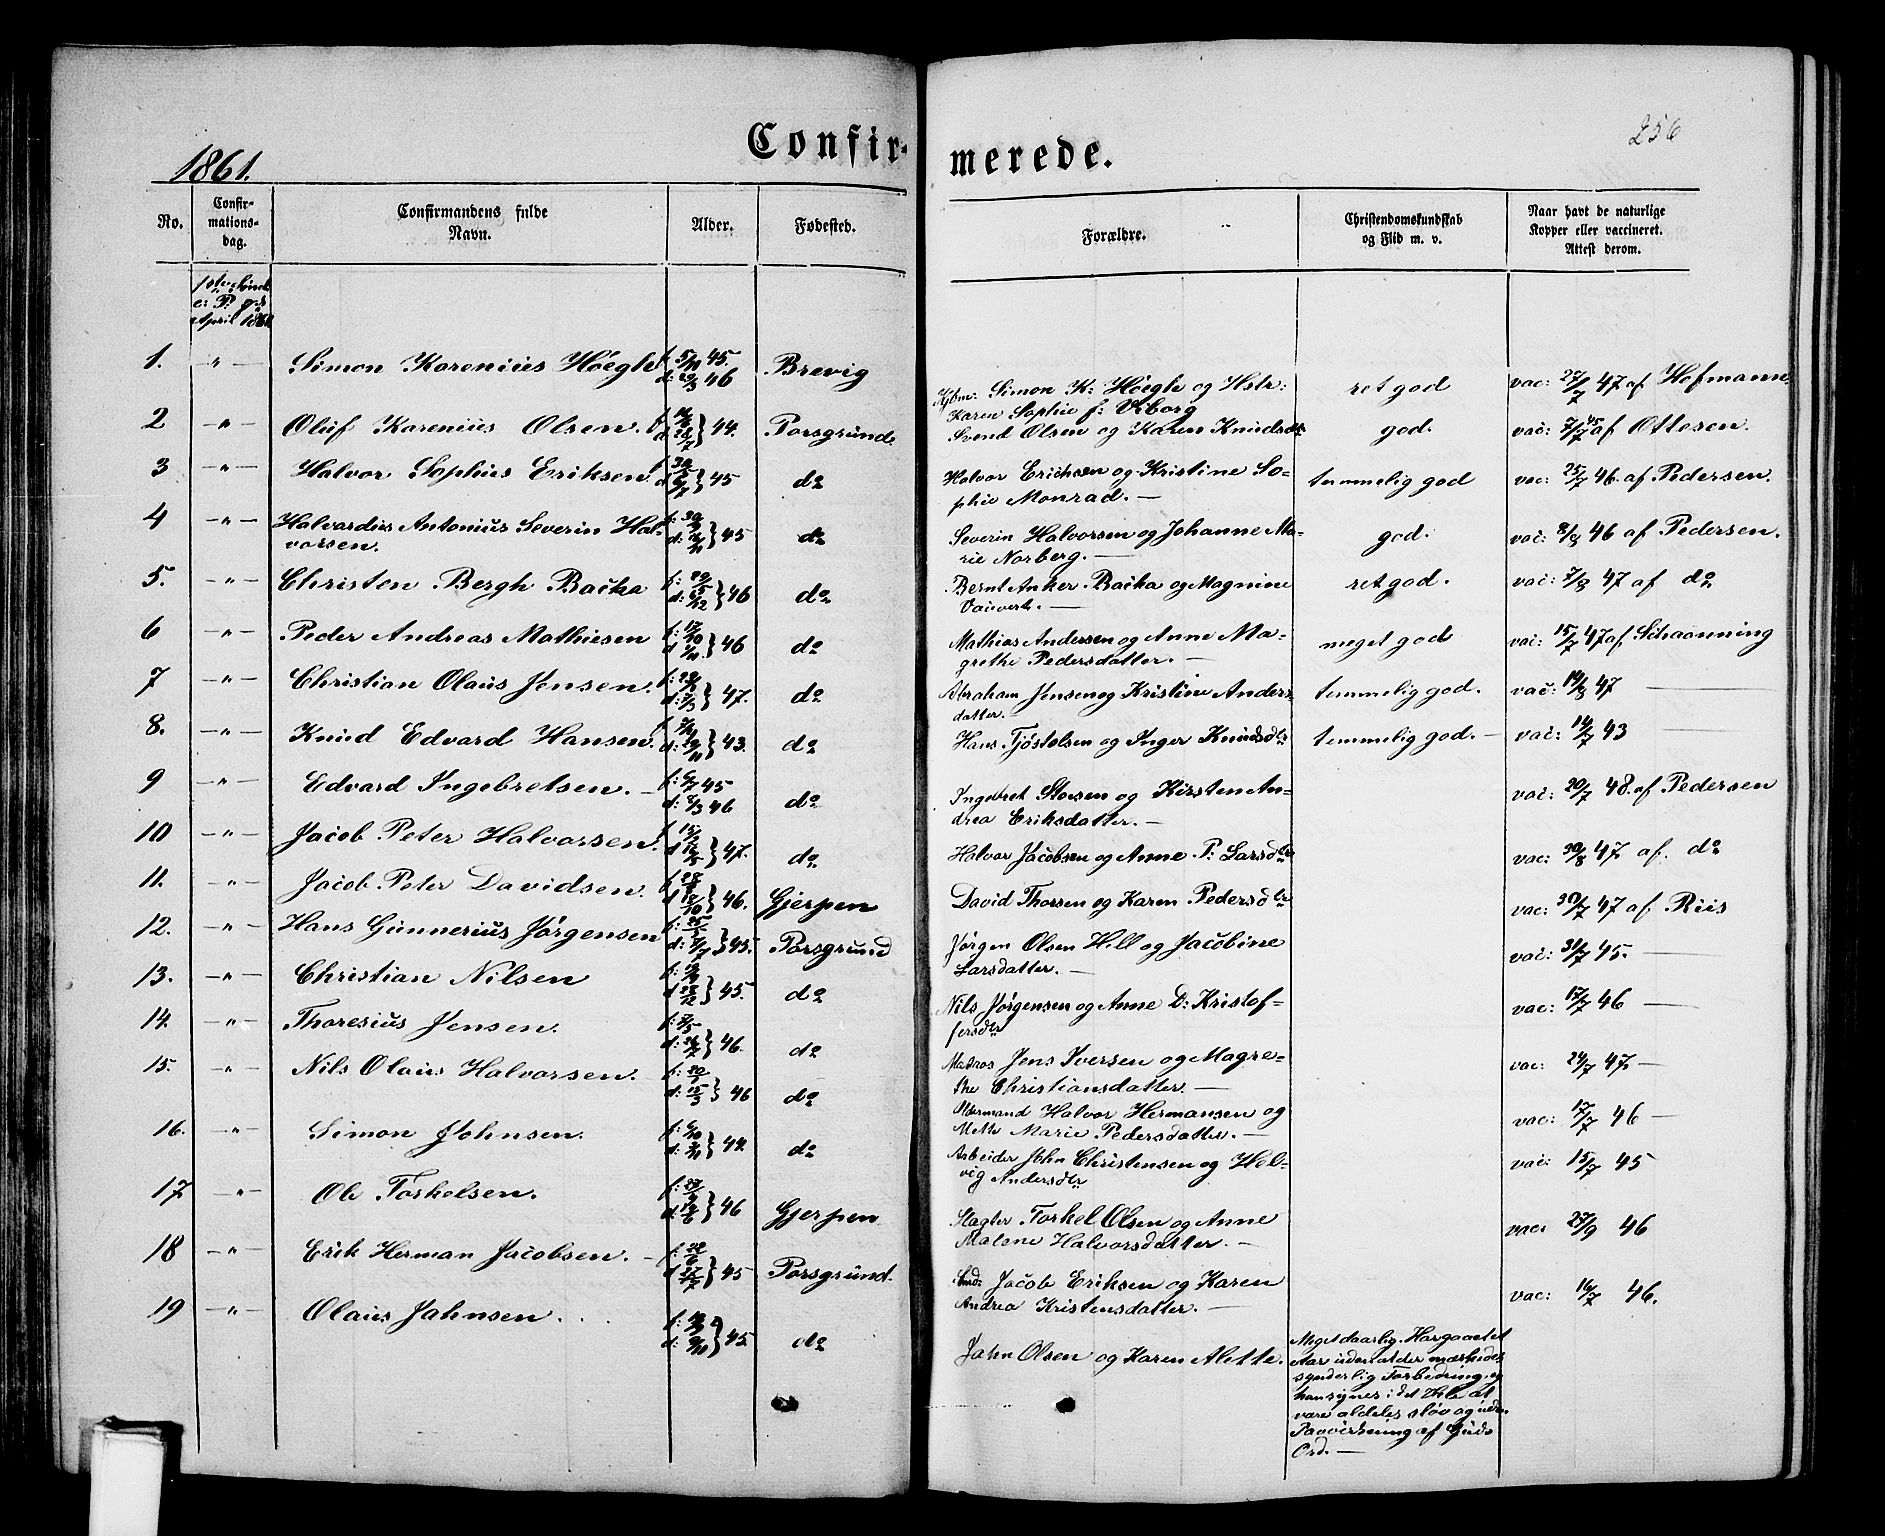 Confir- merede.
256
1861.
No.
Confir-
mations-
dag.
Confirmandens fulde
Navn.
Alder.
Fødested.
Forældre.
Christendomskundskab
og Flid m. v.
Naar havt de naturlige
Kopper eller vaccineret.
Attest derom.
April 1861
1. -"- Simon Karenius Høegh f: 5/11 45. d: 29/3 46 Brevig Kjbm: Simon K: Høegh og Hstr: Karen Sophie f: Viborg ret god vac: 27/7 47 af Hofmann
2 -"- Oluf Karenius Olsen. 44. Porsgrund Svend Olsen og Karen Knudsdtr god. vac: 7/7 45 af Ottesen.
3 -"- Halvor Sophus Eriksen 45 do Halvor Erichsen og Kristine So-
phie Monrad. — temmelig god vac: 25/7 46. af Pedersen.
4 -"- Halvardus Antonius Severin Hal-
vorsen. 45 do Severin Halvorsen og Johanne Ma-
rie Norberg. — god. vac: 46 af Pedersen.
5. -"- Christen Bergh Backa 46 do Bernt Anker Backa og Magnine
ret god. vac: 7/8 47 af do
6 -"- Peder Andreas Mathiesen 46 do Mathias Andersen og Anne Ma-
grethe Pedersdatter. — meget god vac: 15/7 47 af Schaanning
7 -"- Christian Olaus Jensen. 47. do Abraham Jensen og Kristine Anders-
datter. — temmelig god. vac: 47 —
8. -"- Knud Edvard Hansen. 43. do Hans Tjøstolsen og Inger Knudsdtr temmelig god. — vac: 14/7 43 —
9 -"- Edvard Ingebretsen. — 45 46 do Ingebret Olsen og Kirsten An-
drea Eriksdatter. — vac: 20/7 48. af Pedersen
10 -"- Jacob Peter Halvorsen. 47. do Halvor Jacobsen og Anne P: Larsdtr vac: 30/8 47 af. do
11. -"- Jacob Peter Davidsen. 46. Gjerpen David Thorsen og Karen Pedersdtr vac: 30/7 47 af Riis
12. -"- Hans Gunnerius Jørgensen 45. Porsgrund Jørgen Olsen Hill og Jacobine
Larsdatter. — vac: 31/7 45. —
13. -"- Christian Nilsen 45. do Nils Jørgensen og Anne D: Kristof-
fersdtr vac: 17/7 46 —
14. -"- Thoresius Jensen. 46. do Matros Jens Iversen og Magre-
the Christiansdatter. — vac: 24/7 47. —
15. -"- Nils Olaus Halvorsen. 46 do Halvor Hermansen og
Mette Marie Pedersdatter. — vac: 17/7 46 —
16. -"- Simon Johnsen. 44. do Arbeider John Christensen og Hel-
vig Andersdtr vac: 15/7 45
17 -"- Ole Torkelsen. 46 Gjerpen Slagter Torkel Olsen og Anne
Malene Halvorsdatter. — vac: 27/9 46
18 -"- Erik Herman Jacobsen. — 45 Porsgrund. Jacob Eriksen og Karen
Andrea Kristensdatter. — vac: 16/7 46.
19 -"- Olaus Jahnsen. 45 do Jahn Olsen og Karen Alette. Meget daarlig. Har gaaet et
Aar uden at der mærkedes
synderlig Forbedring, og
han synes i det Hele at
være aldeles sløv og uden
Paavirkning af Guds
Ord. —